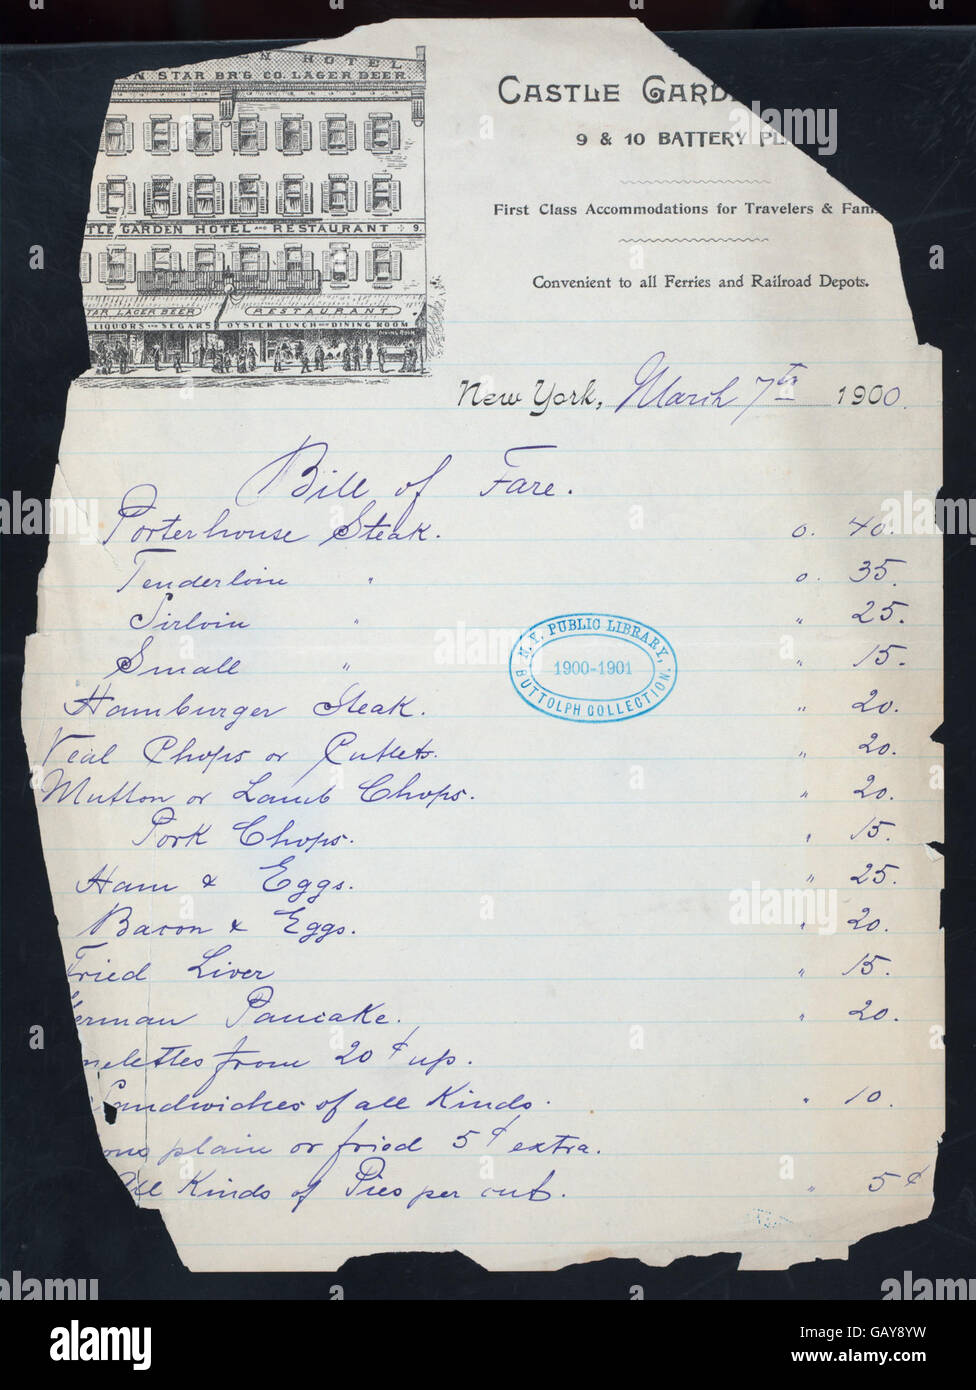 EN HOTEL
N STAR BR'G CO. LAGER BEER
TLE GARDEN HOTEL AND RESTAURANT 9.
TAR LAGER BEER RESTAURANT
LIQUORS AND SEGARS OYSTER LUNCH AND DINING ROOM
DINING ROOM
CASTLE GARD
9 & 10 BATTERY PL
First Class Accommodations for Travelers & Fam
Convenient to all Ferries and Railroad Depots.
New York, March 7th 1900.
Bill of Fare.
Porterhouse Steak. 0. 40.
Tenderloin " 0. 35.
Sirloin " " 25.
Small " " 15.
Hamburger Steak. " 20.
Veal Chops or Cutlets. " 20.
Mutton or Lamb Chops. " 20.
Pork Chops. " 15.
Ham & Eggs. " 25.
Bacon & Eggs. " 20.
Fried Liver " 15.
German Pancake. " 20.
melettes from 20¢ up.
Sandwiches of all Kinds. " 10.
ons plain or fried 5¢ extra.
All Kinds of Pies per cut. " 5¢
N. Y. PUBLIC LIBRARY,
1900-1901
BUTTOLPH COLLECTION.
alamy
Image ID: GAY8YW
www.alamy.com